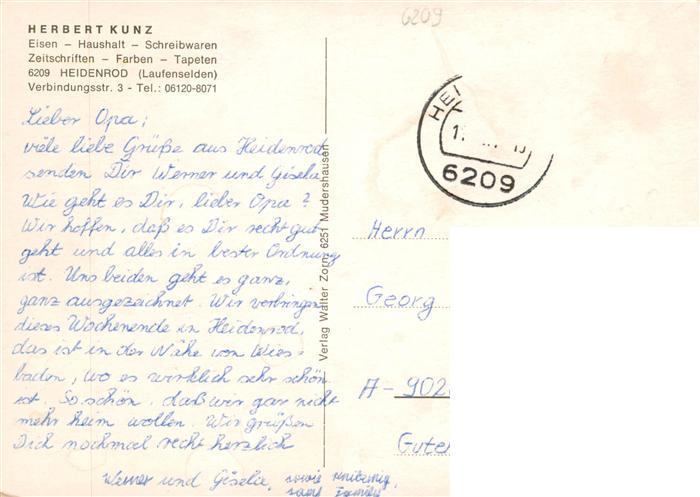 6209
HERBERT KUNZ
Eisen – Haushalt – Schreibwaren
Zeitschriften – Farben – Tapeten
6209 HEIDENROD (Laufenselden)
Verbindungsstr. 3 - Tel.: 06120-8071
Lieber Opa,
viele liebe Grüße aus Heidenrod
senden Dir Werner und Gisela.
Wie geht es Dir, lieber Opa?
Wir hoffen, daß es Dir recht gut
geht und alles in bester Ordnung
ist. Uns beiden geht es ganz,
ganz ausgezeichnet. Wir verbringen
dieses Wochenende in Heidenrod,
das ist in der Nähe von Wies-
baden, wo es wirklich sehr schön
ist. So schön, daß wir gar nicht
mehr heim wollen. Wir grüßen
Dich nochmal recht herzlich
Werner und Gisela, sowie
Verlag Walter Zorn, 6251 Mudershausen
HEI
6209
Herrn
Georg
A-902
Gute